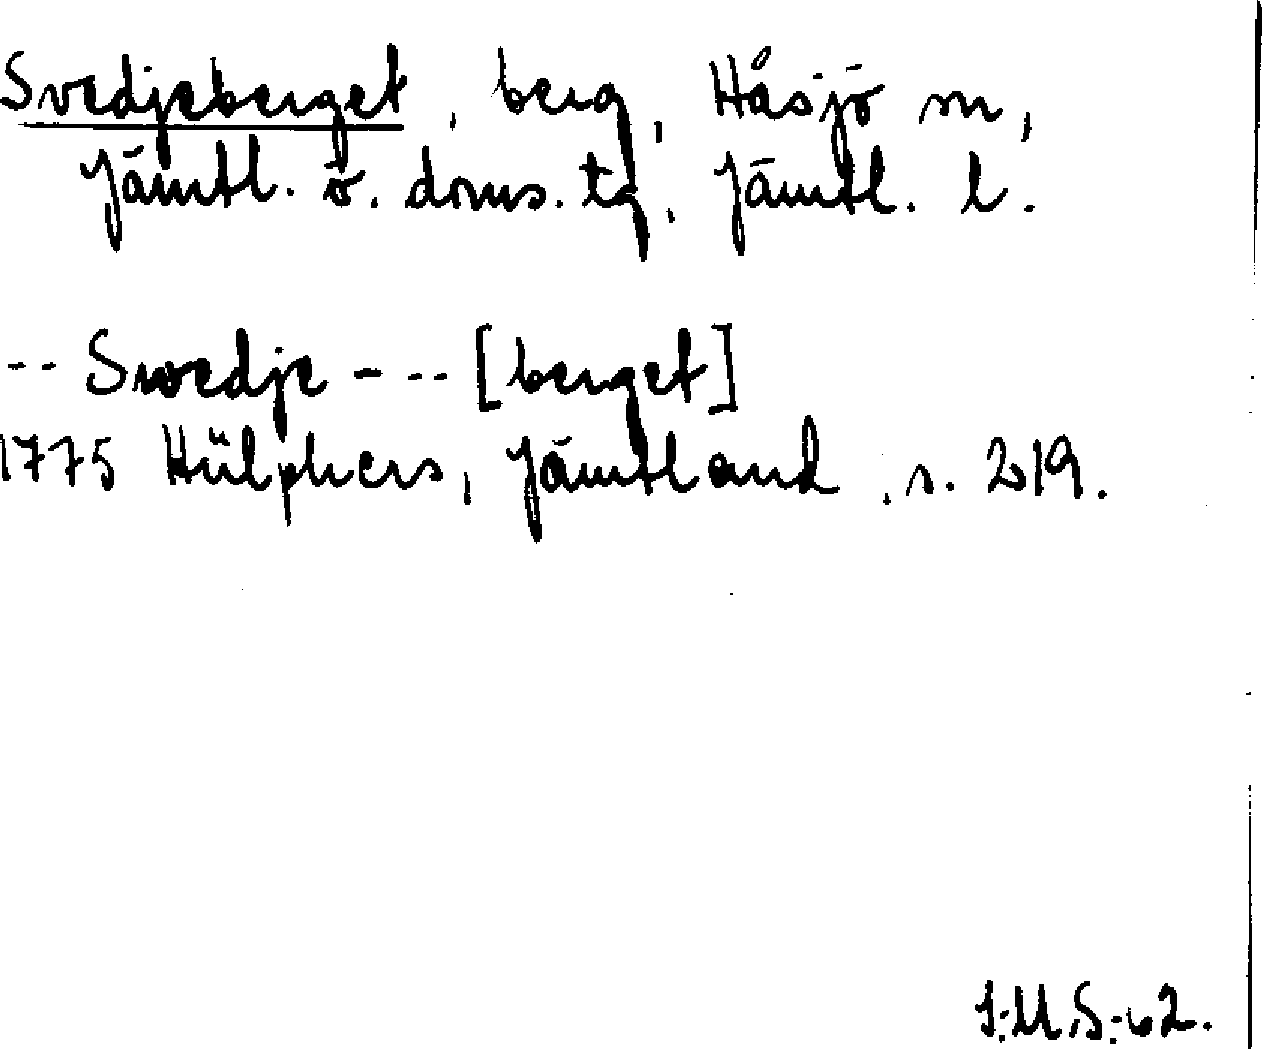 Svedjeberget, berg, Håsjö sn,
Jämtl. ö. doms. tg, Jämtl. l.
-- Swedje --- [berget]
1775 Hülphers, Jämtland, s. 219.
I.M.S.-62.